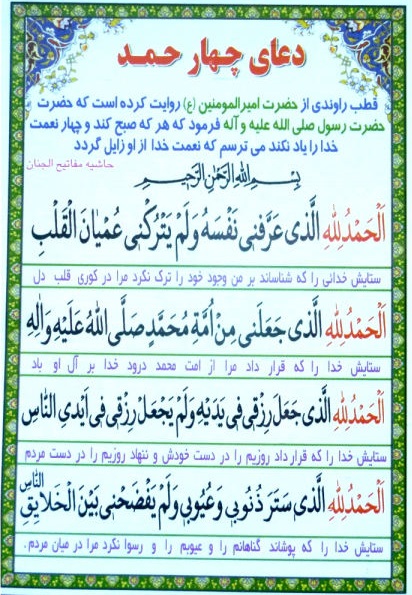 دعای چهار حمد
قطب راوندی از حضرت امیرالمومنین (ع) روایت کرده است که حضرت
حضرت رسول صلی الله علیه و آله فرمود که هر که صبح کند و چهار نعمت
خدا را یاد نکند می ترسم که نعمت خدا از او زایل گردد
حاشیه مفاتیح الجنان
بِسْمِ اللهِ الرَّحْمٰنِ الرَّحيمِ
اَلْحَمْدُلِلّٰهِ الَّذی عَرَّفَنی نَفْسَهُ وَلَمْ یَتْرُکْنی عُمْیٰانَ الْقَلْبِ
ستایش خدائی را که شناساند بر من وجود خود را ترک نکرد مرا در کوری قلب دل
اَلْحَمْدُلِلّٰهِ الَّذی جَعَلَنی مِنْ اُمَّةِ مُحَمَّدٍ صَلَّی اللهُ عَلَیْهِ وَالِهِ
ستایش خدا را که قرار داد مرا از امت محمد درود خدا بر آل او باد
اَلْحَمْدُلِلّٰهِ الَّذی جَعَلَ رِزْقی فی یَدَیْهِ وَلَمْ یَجْعَلْ رِزْقی فی اَیْدِی النّٰاسِ
ستایش خدا را که قرار داد روزیم را در دست خودش و ننهاد روزیم را در دست مردم
اَلْحَمْدُلِلّٰهِ الَّذی سَتَرَ ذُنُوبی وَعُیُوبی وَلَمْ یَفْضَحْنی بَیْنَ الْخَلٰایِقِ النّٰاسِ
ستایش خدا را که پوشاند گناهانم را و عیوبم را و رسوا نکرد مرا در میان مردم.